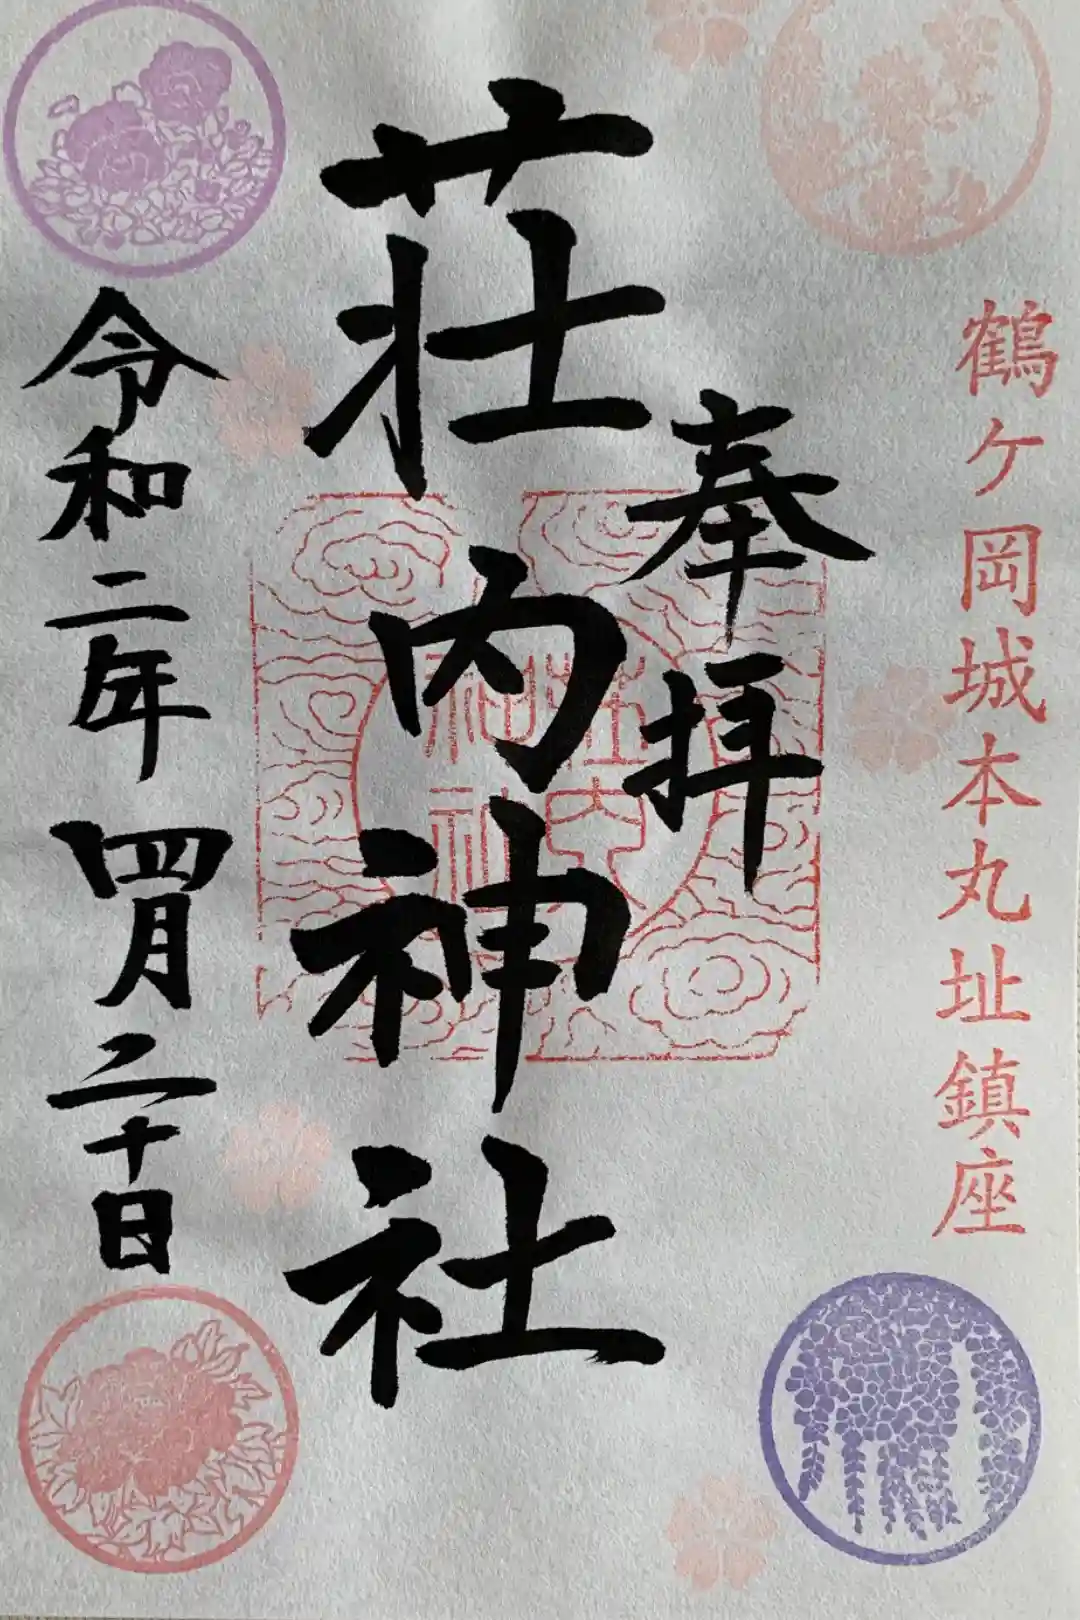 鶴ケ岡城本丸址鎮座
奉拝
荘内神社
荘内
神社
令和二年四月二十日